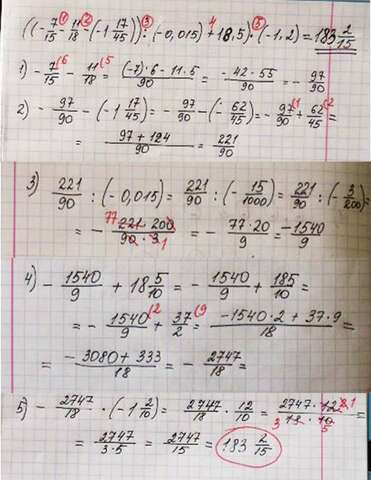 ((-7/15 - 11/18 - (-1 17/45)) : (-0,015) + 18,5) · (-1,2) = 183 2/15
1) -7/15 - 11/18 = (-7)·6-11·5/90 = -42-55/90 = -97/90
2) -97/90 - (-1 17/45) = -97/90 - (-62/45) = -97/90 + 62/45 =
= -97+124/90 = 221/90
3) 221/90 : (-0,015) = 221/90 : (-15/1000) = 221/90 : (-3/200) =
= -221·200/90·3 = -77·20/9 = -1540/9
4) -1540/9 + 18 5/10 = -1540/9 + 185/10 =
= -1540/9 + 37/2 = -1540·2+37·9/18 =
= -3080+333/18 = -2747/18 =
5) -2747/18 · (-1 2/10) = 2747/18 · 12/10 = 2747·12/18·10 =
= 2747/3·5 = 2747/15 = 183 2/15